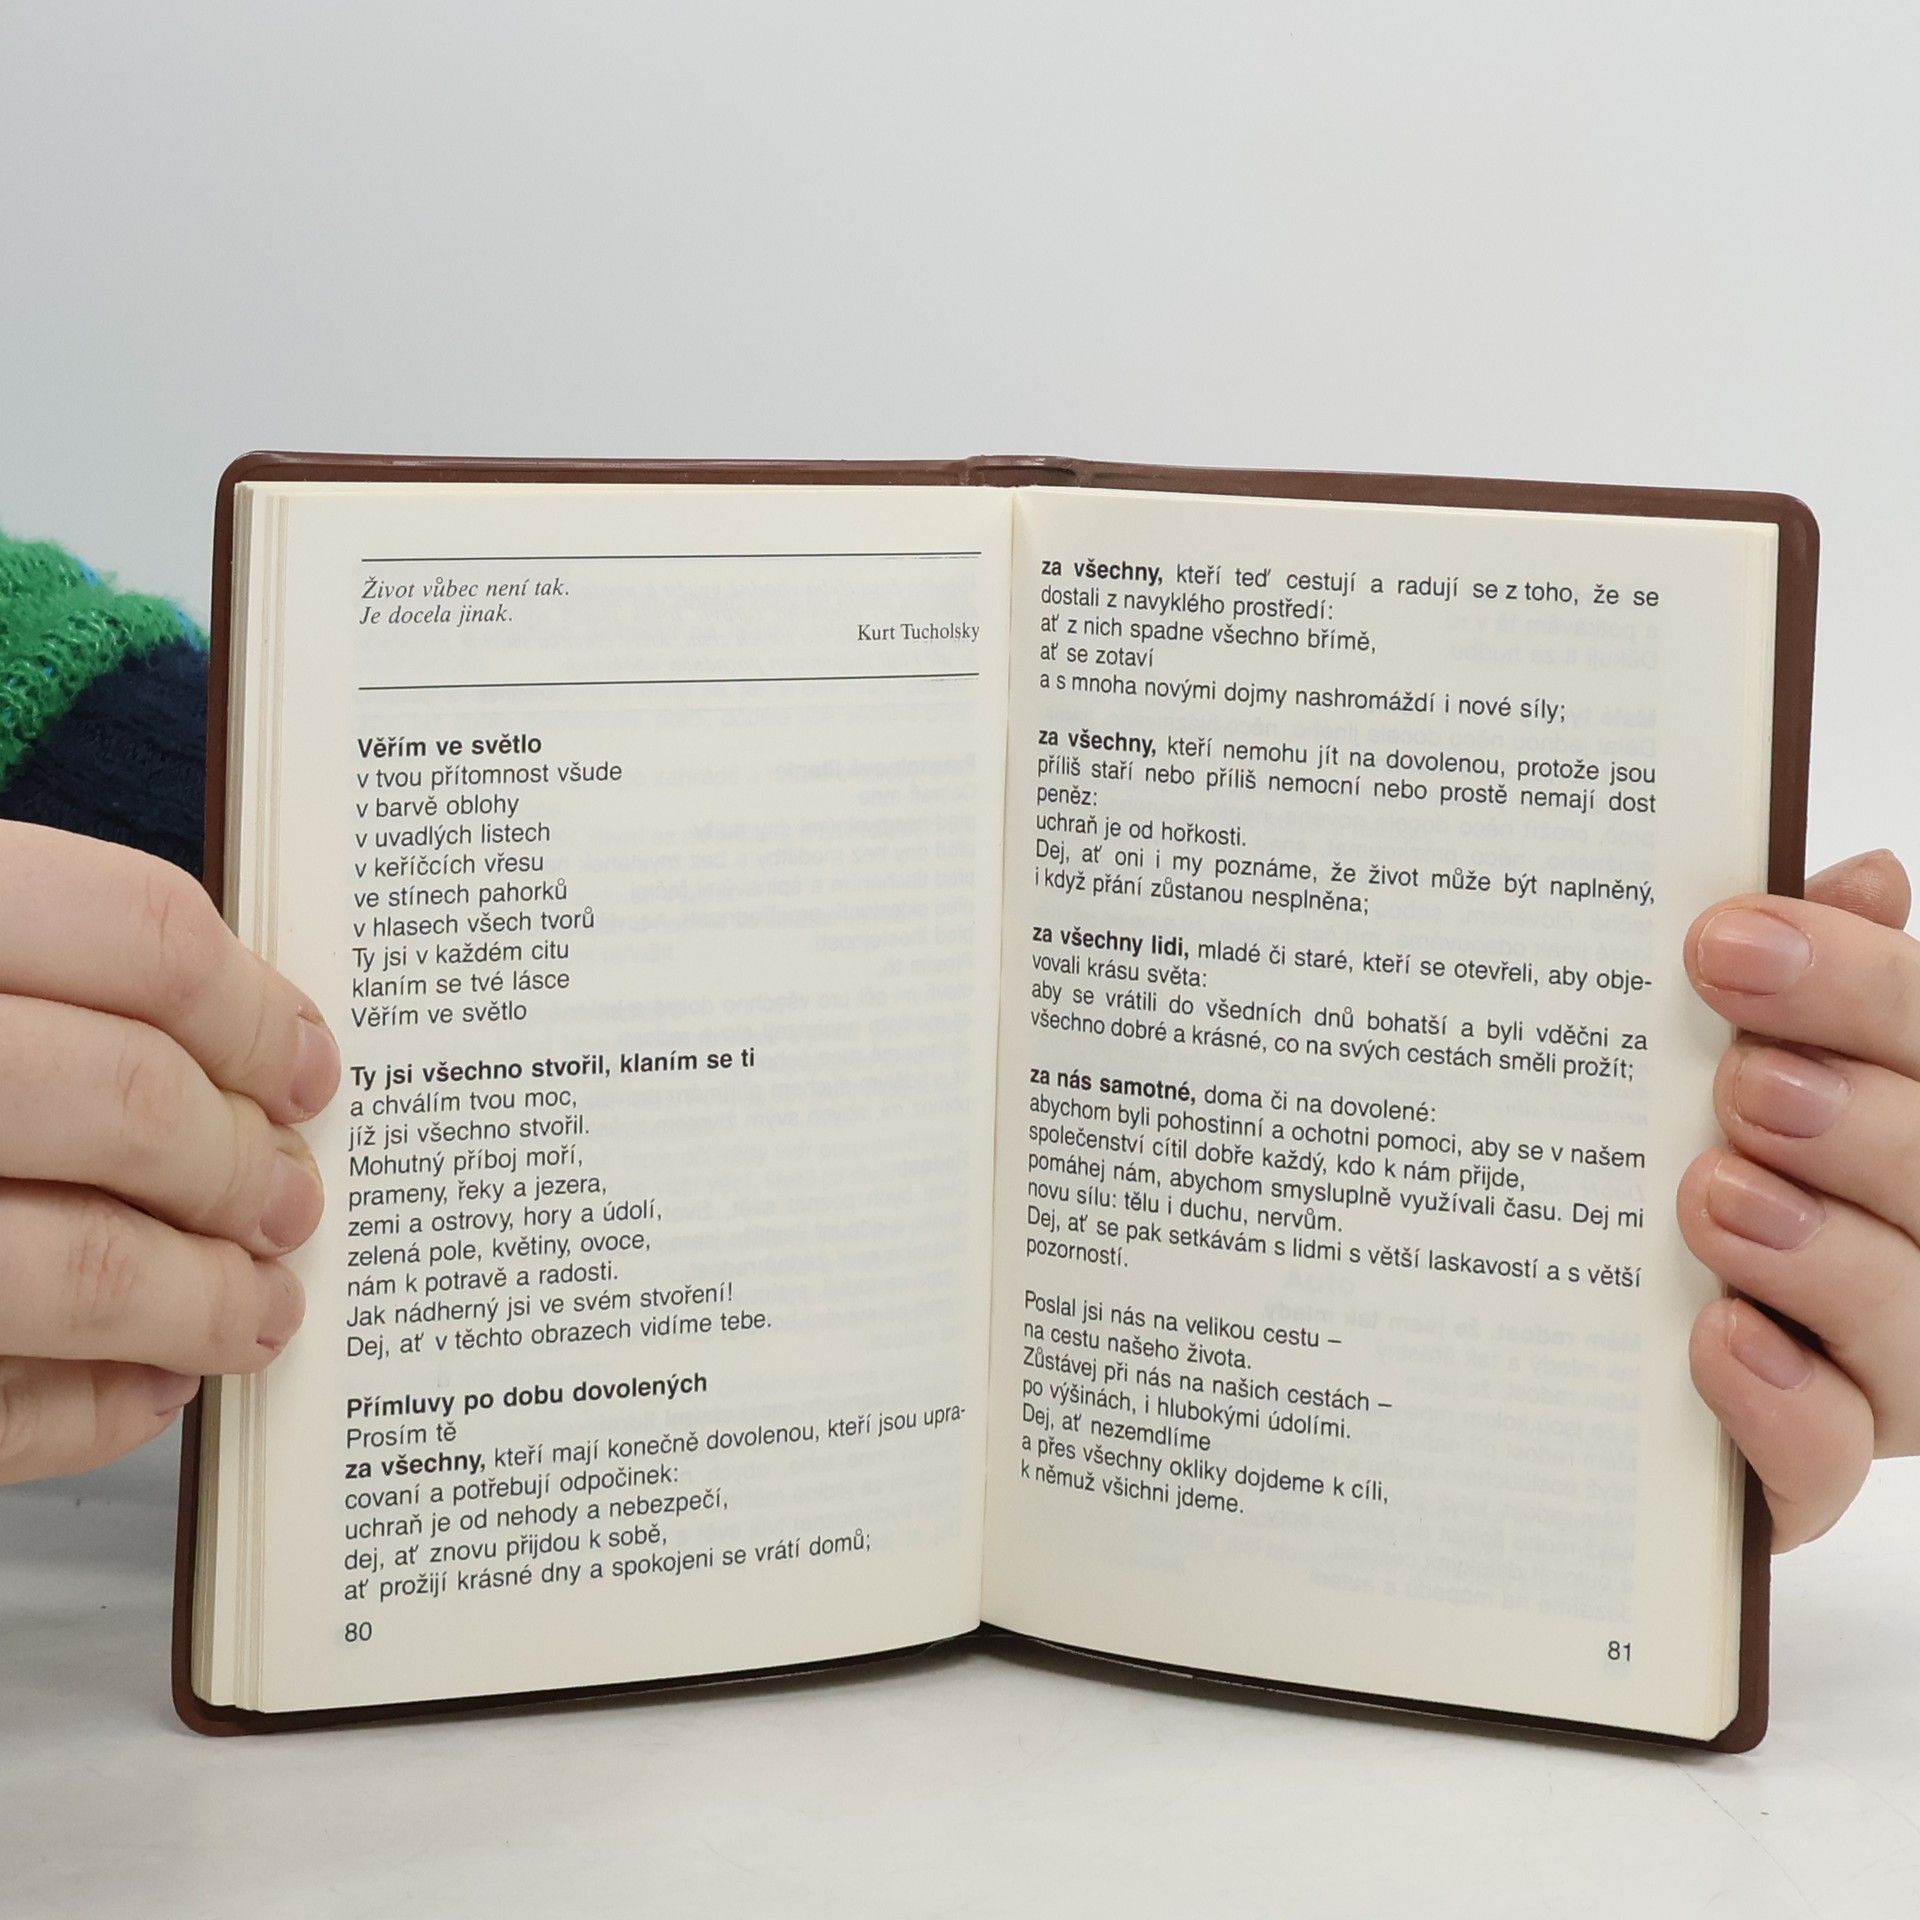 Život vůbec není tak.
Je docela jinak.
Kurt Tucholsky
Věřím ve světlo
v tvou přítomnost všude
v barvě oblohy
v uvadlých listech
v keříčcích vřesu
ve stínech pahorků
v hlasech všech tvorů
Ty jsi v každém citu
klaním se tvé lásce
Věřím ve světlo
Ty jsi všechno stvořil, klaním se ti
a chválím tvou moc,
jíž jsi všechno stvořil.
Mohutný příboj moří,
prameny, řeky a jezera,
zemi a ostrovy, hory a údolí,
zelená pole, květiny, ovoce,
nám k potravě a radosti.
Jak nádherný jsi ve svém stvoření!
Dej, ať v těchto obrazech vidíme tebe.
Přímluvy po dobu dovolených
Prosím tě
za všechny, kteří mají konečně dovolenou, kteří jsou upra-
covaní a potřebují odpočinek:
uchraň je od nehody a nebezpečí,
dej, ať znovu přijdou k sobě,
ať prožijí krásné dny a spokojeni se vrátí domů;
80
za všechny, kteří teď cestují a radují se z toho, že se
dostali z navyklého prostředí:
ať z nich spadne všechno břímě,
ať se zotaví
a s mnoha novými dojmy nashromáždí i nové síly;
za všechny, kteří nemohu jít na dovolenou, protože jsou
příliš staří nebo příliš nemocní nebo prostě nemají dost
peněz:
uchraň je od hořkosti.
Dej, ať oni i my poznáme, že život může být naplněný,
i když přání zůstanou nesplněna;
za všechny lidi, mladé či staré, kteří se otevřeli, aby obje-
vovali krásu světa:
aby se vrátili do všedních dnů bohatší a byli vděčni za
všechno dobré a krásné, co na svých cestách směli prožít;
za nás samotné, doma či na dovolené:
abychom byli pohostinní a ochotni pomoci, aby se v našem
společenství cítil dobře každý, kdo k nám přijde,
pomáhej nám, abychom smysluplně využívali času. Dej mi
novu sílu: tělu i duchu, nervům.
Dej, ať se pak setkávám s lidmi s větší laskavostí a s větší
pozorností.
Poslal jsi nás na velikou cestu –
na cestu našeho života.
Zůstávej při nás na našich cestách –
po výšinách, i hlubokými údolími.
Dej, ať nezemdlíme
a přes všechny okliky dojdeme k cíli,
k němuž všichni jdeme.
81